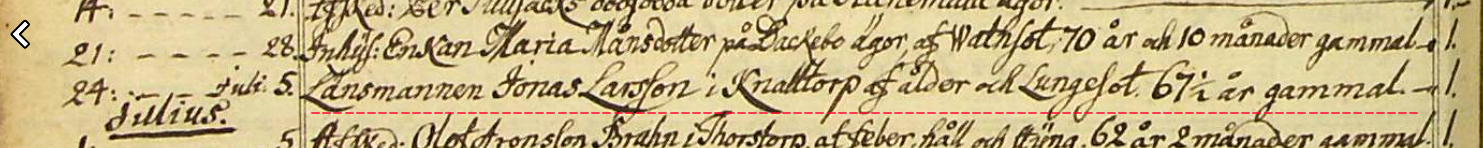 21. Afsked:
21: - - - - - 28. Inhys: Enkan Maria Månsdotter på Backebo ägor, af Wathsot, 70 år och 10 månader gammal. 1.
24: - - Juli: 5. Länsmannen Jonas Larsson i Knalltorp af ålder och Lungesot. 67½ år gammal. 1.
Julius.
5. Afsked: Olof Aronsson Brahn i Thorstorp, af feber, håll och styng, 62 år 2 månader gammal. 1.